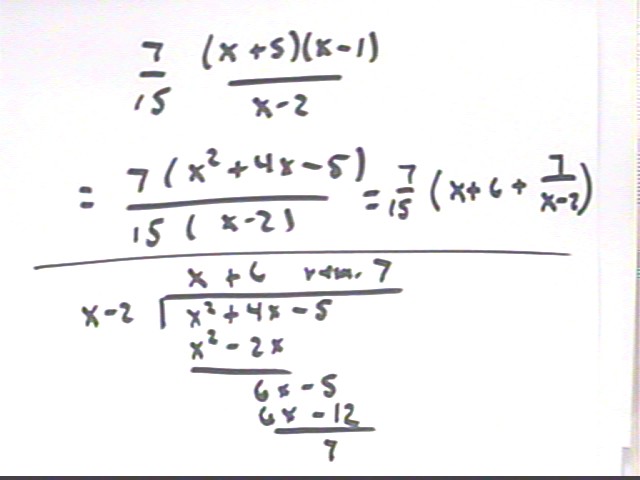 7/15 (x+5)(x-1)/x-2
= 7(x²+4x-5)/15(x-2) = 7/15 (x+6+7/x-2)
x+6 rem. 7
x-2 x²+4x-5
x²-2x
6x-5
6x-12
7